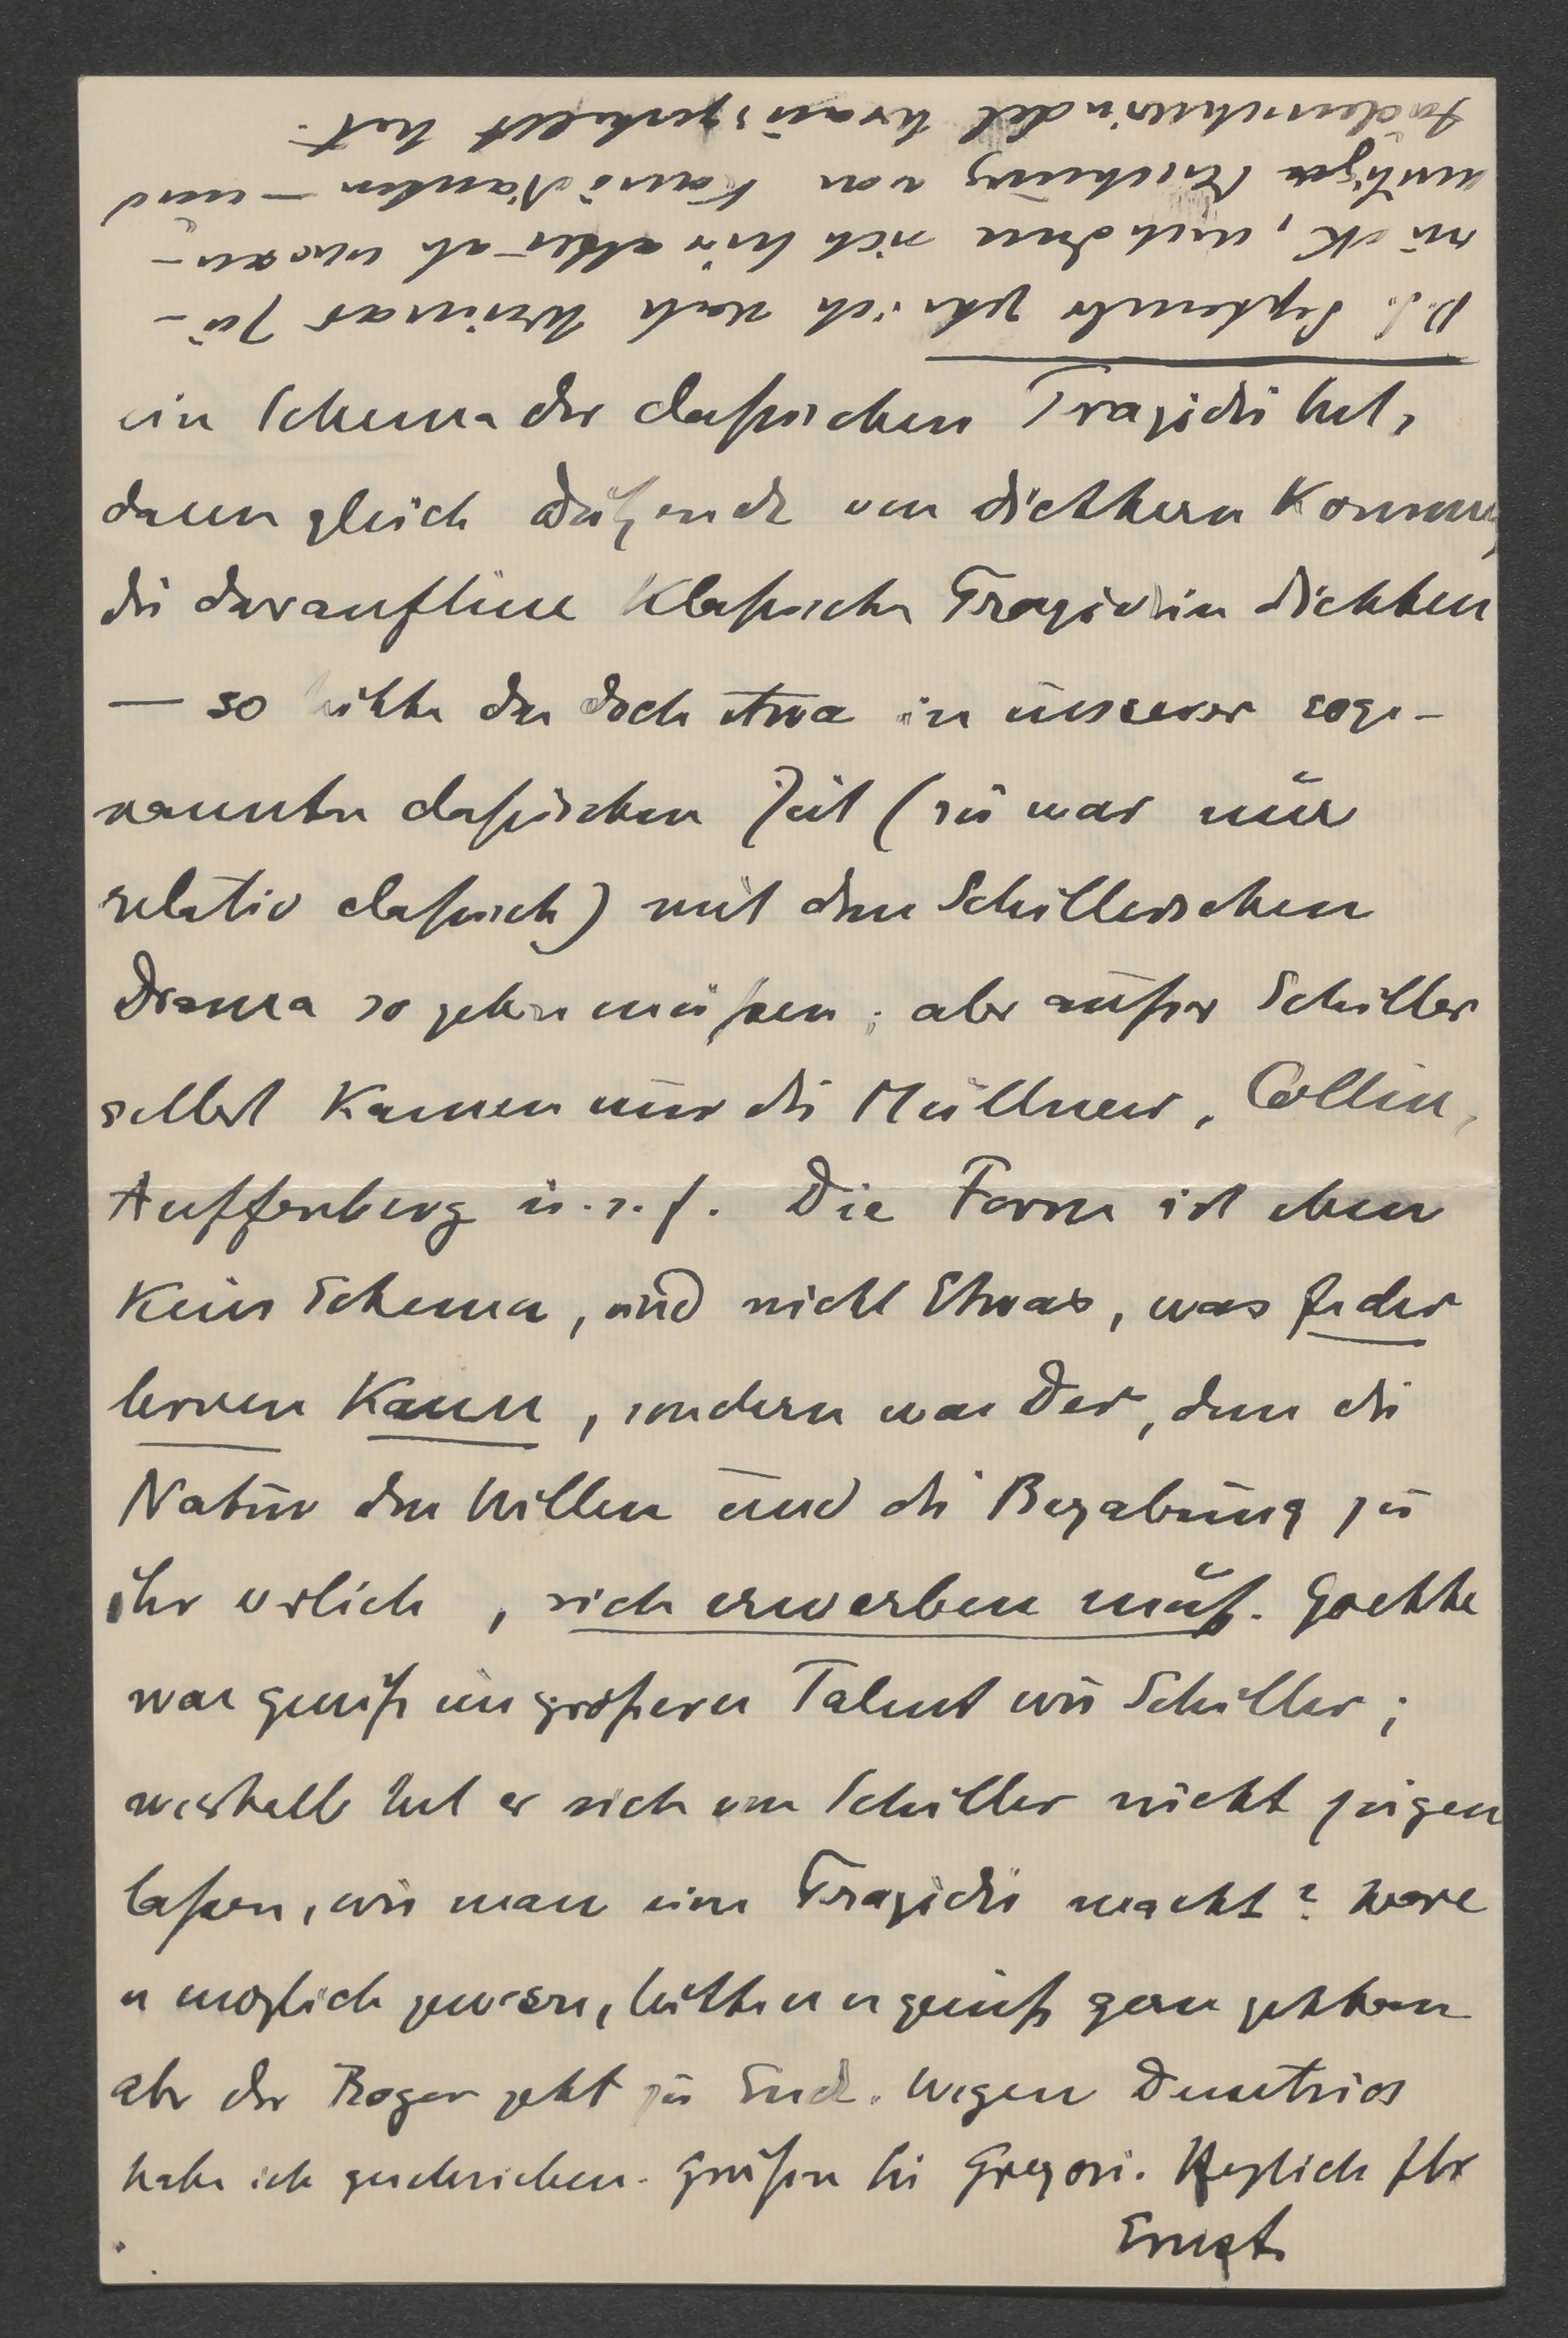 ein Schema der classischen Tragödie hat,
dann gleich Dutzende von Dichtern kommen,
die daraufhine klassische Tragödien dichten
— so hätte das doch etwa in unserer soge-
nannten classischen Zeit (sie war nur
relativ classisch) mit dem Schillerschen
Drama so gehen müssen; aber außer Schiller
selbst kamen nur die Müllner, Collin,
Auffenberg u.s.f. Die Form ist eben
kein Schema, und nicht Etwas, was Jeder
lernen kann, sondern was Der, dem die
Natur den Willen und die Begabung zu
ihr verlieh, sich erwerben muß. Goethe
war gewiß ein größeres Talent wie Schiller;
weshalb hat er sich von Schiller nicht zeigen
laßen, wie man eine Tragödie macht? Wäre
es möglich gewesen, hätte er es gewiß gern gethan
aber der Bogen geht zu Ende. Wegen Demetrios
habe ich geschrieben. Grüßen Sie Gregori. Herzlich Ihr
Ernst
P.S. September gehe ich nach Weimar zu-
rück, nachdem sich hier alles als
von Kunst Nauten — und
herausgestellt hat.